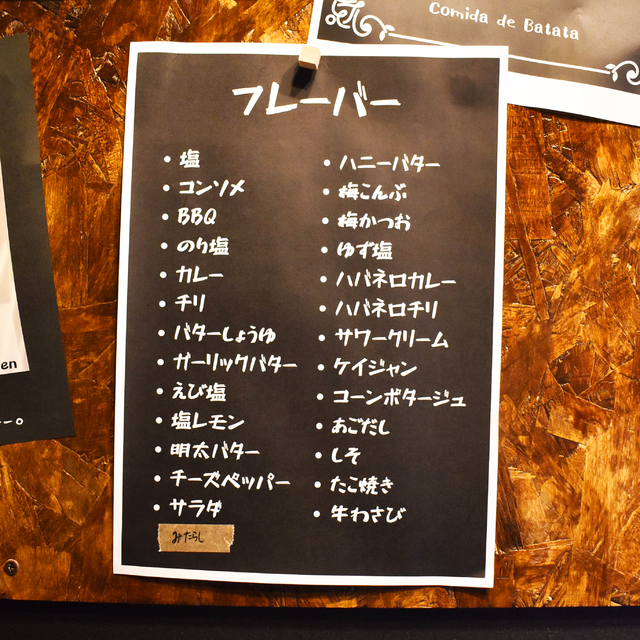 Comida de Batata
フレーバー
・塩
・コンソメ
・BBQ
・のり塩
・カレー
・チリ
・バターしょうゆ
・ガーリックバター
・えび塩
・塩レモン
・明太バター
・チーズペッパー
・サラダ
みたらし
・ハニーバター
・梅こんぶ
・梅かつお
・ゆず塩
・ハバネロカレー
・ハバネロチリ
・サワークリーム
・ケイジャン
・コーンポタージュ
・あごだし
・しそ
・たこ焼き
・牛わさび
en
ー。